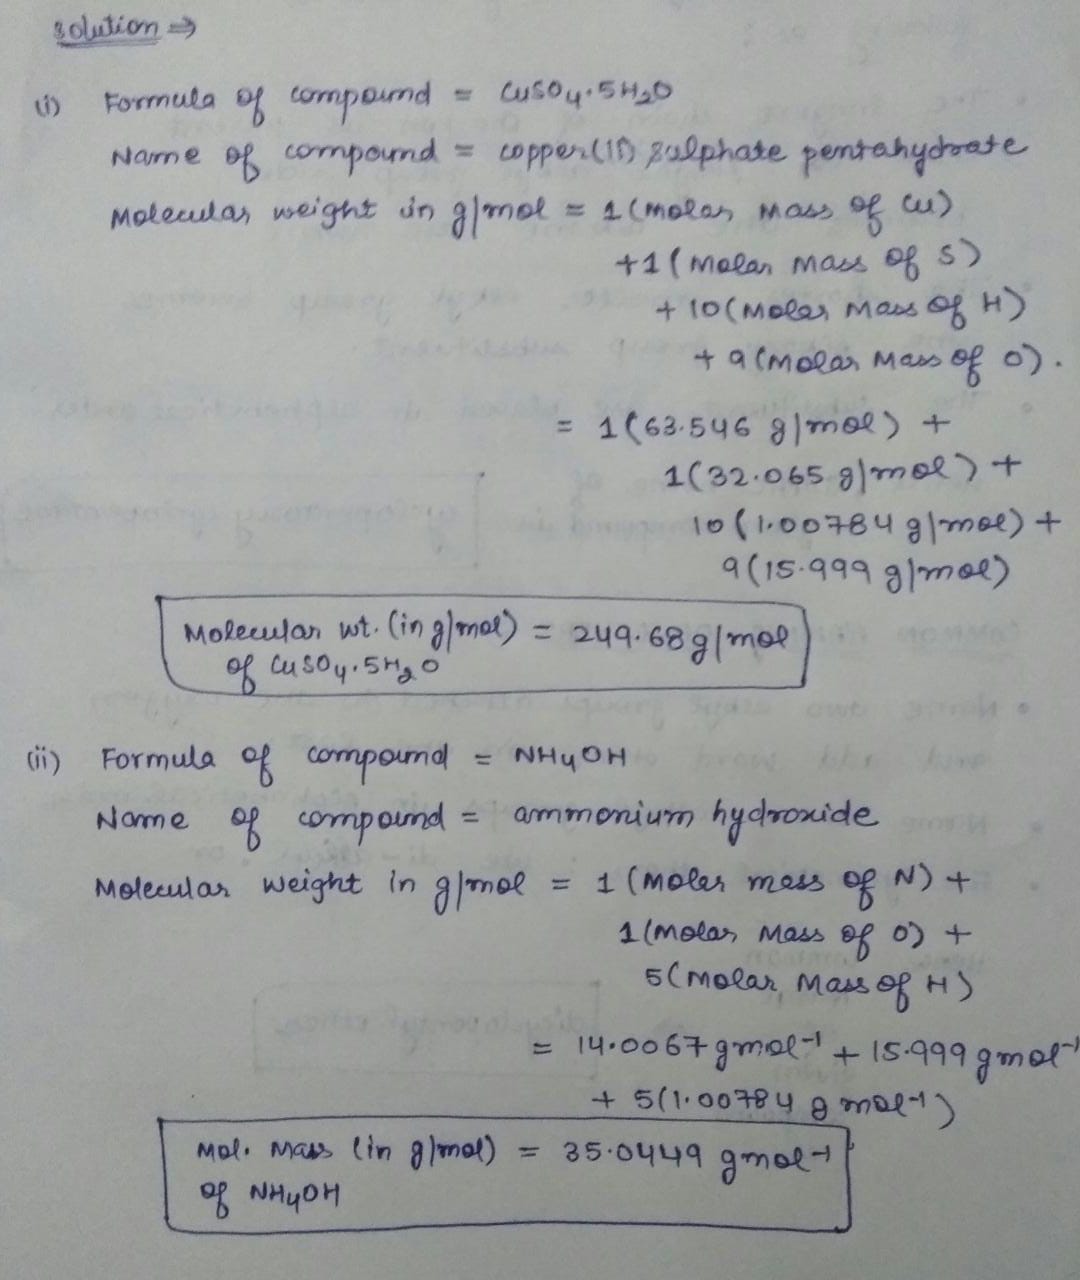 solution ⇒
(i) Formula of compound = CuSO4.5H2O
Name of compound = copper(II) sulphate pentahydrate
Molecular weight in g/mol = 1(molar mass of Cu)
+1(molar mass of S)
+10(molar mass of H)
+9(molar mass of O).
= 1(63.546 g/mol) +
1(32.065 g/mol) +
10(1.00784 g/mol) +
9(15.999 g/mol)
Molecular wt. (in g/mol) = 249.68 g/mol
of CuSO4.5H2O
(ii) Formula of compound = NH4OH
Name of compound = ammonium hydroxide
Molecular weight in g/mol = 1 (molar mass of N) +
1(molar mass of O) +
5(molar mass of H)
= 14.0067 gmol-1 + 15.999 gmol-1
+ 5(1.00784 g mol-1)
Mol. mass (in g/mol) = 35.0449 gmol-1
of NH4OH